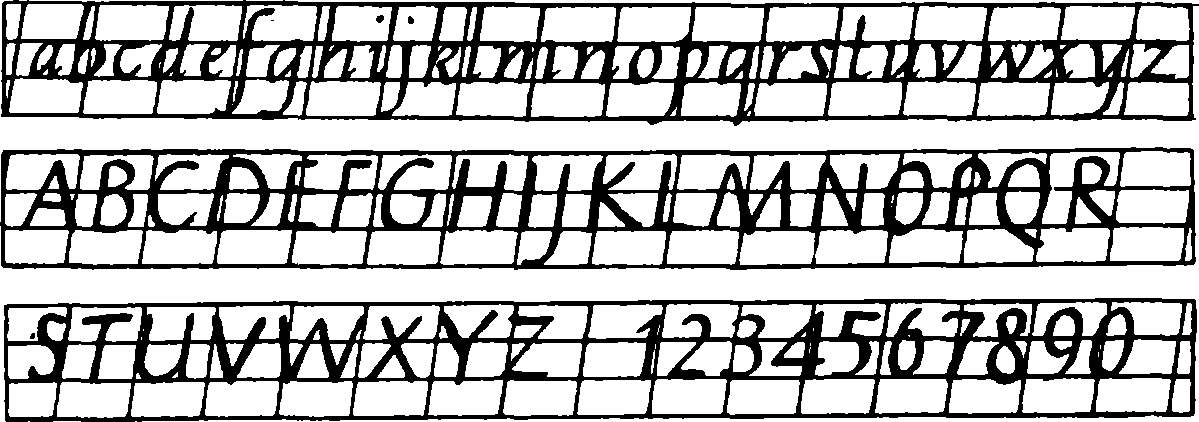 abcdefghijklmnopqrstuvwxyz
ABCDEFGHIJKLMNOPQR
STUVWXYZ 1234567890